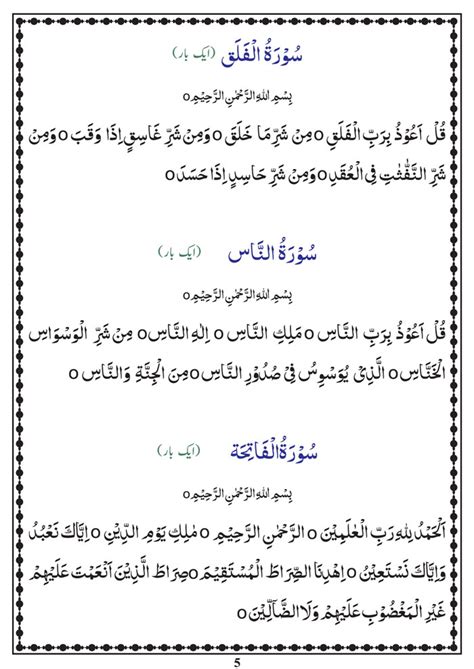 سُوْرَۃُ الْفَلَق (ایک بار)
بِسْمِ اللہِ الرَّحْمٰنِ الرَّحِیْمِo
قُلْ اَعُوْذُ بِرَبِّ الْفَلَقِ o مِنْ شَرِّ مَا خَلَقَ o وَمِنْ شَرِّ غَاسِقٍ اِذَا وَقَبَ o وَمِنْ
شَرِّ النَّفّٰثٰتِ فِی الْعُقَدِ o وَمِنْ شَرِّ حَاسِدٍ اِذَا حَسَدَ o
سُوْرَۃُ النَّاس (ایک بار)
بِسْمِ اللہِ الرَّحْمٰنِ الرَّحِیْمِo
قُلْ اَعُوْذُ بِرَبِّ النَّاسِ o مَلِكِ النَّاسِ o اِلٰهِ النَّاسِ o مِنْ شَرِّ الْوَسْوَاسِ
الْخَنَّاسِ o الَّذِیْ یُوَسْوِسُ فِیْ صُدُوْرِ النَّاسِ o مِنَ الْجِنَّةِ وَالنَّاسِ o
سُوْرَۃُ الْفَاتِحَة (ایک بار)
بِسْمِ اللہِ الرَّحْمٰنِ الرَّحِیْمِo
اَلْحَمْدُ لِلّٰهِ رَبِّ الْعٰلَمِیْنَ o الرَّحْمٰنِ الرَّحِیْمِ o مٰلِكِ یَوْمِ الدِّیْنِ o اِیَّاكَ نَعْبُدُ
وَاِیَّاكَ نَسْتَعِیْنُ o اِهْدِنَا الصِّرَاطَ الْمُسْتَقِیْمَ o صِرَاطَ الَّذِیْنَ اَنْعَمْتَ عَلَیْهِمْ
غَیْرِ الْمَغْضُوْبِ عَلَیْهِمْ وَلَا الضَّآلِّیْنَ o
5